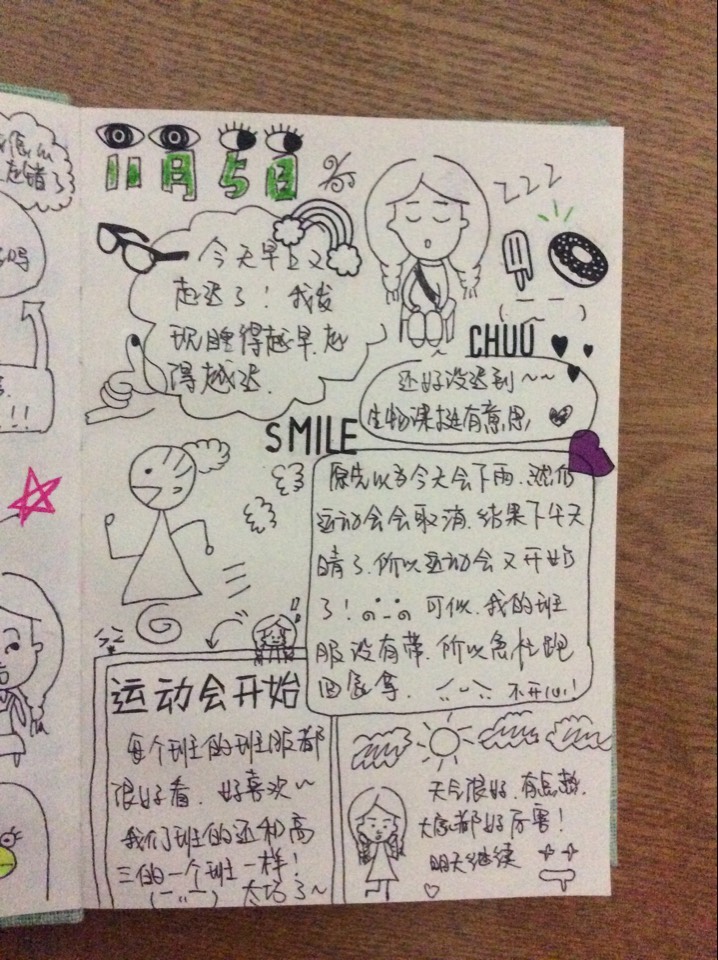 11月5日
今天早上又
起迟了！我发
现睡得越早起
得越迟.
ZZZ
CHUU
还好没迟到~~
生物课挺有意思
SMILE
原先以为今天会下雨.
运动会会取消.结果下午天
晴了.所以运动会又开始
了！可似.我的班
服没有带.所以急忙跑
回家拿.不开心！
运动会开始
每个班的班服都
很好看.好喜欢~
我们班的还和高
三的一个班一样！
太巧了~
天气很好.有点热.
大家都好厉害！
明天继续
起错了
吗
!!